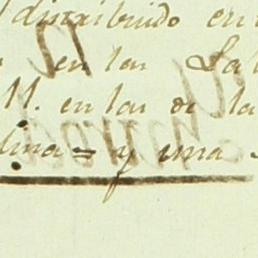 distribuido en
en las Sa
11. en las de la
lina = y una